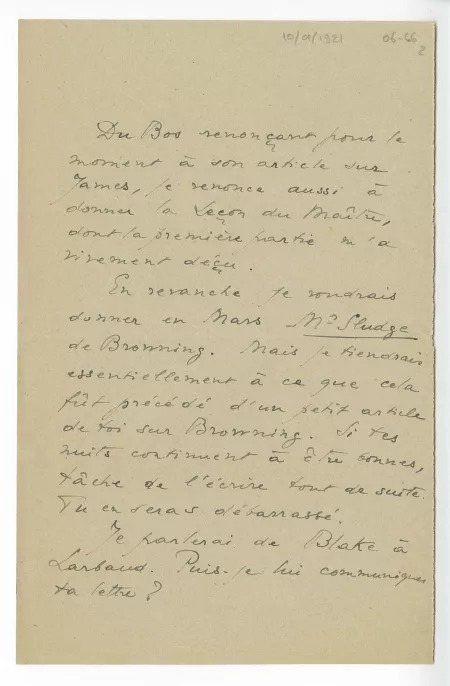 10/01/1921 06-66
2
Du Bos renonçant pour le
moment à son article sur
James, je renonce aussi à
donner la Leçon du Maître,
dont la première partie m'a
vivement déçu.
En revanche je voudrais
donner en Mars Mr Sludge
de Browning. Mais je tiendrais
essentiellement à ce que cela
fût précédé d'un petit article
de toi sur Browning. Si tes
nuits continuent à être bonnes,
tâche de l'écrire tout de suite.
Tu en seras débarrassé.
Je parlerai de Blake à
Larbaud. Puis-je lui communiquer
ta lettre ?